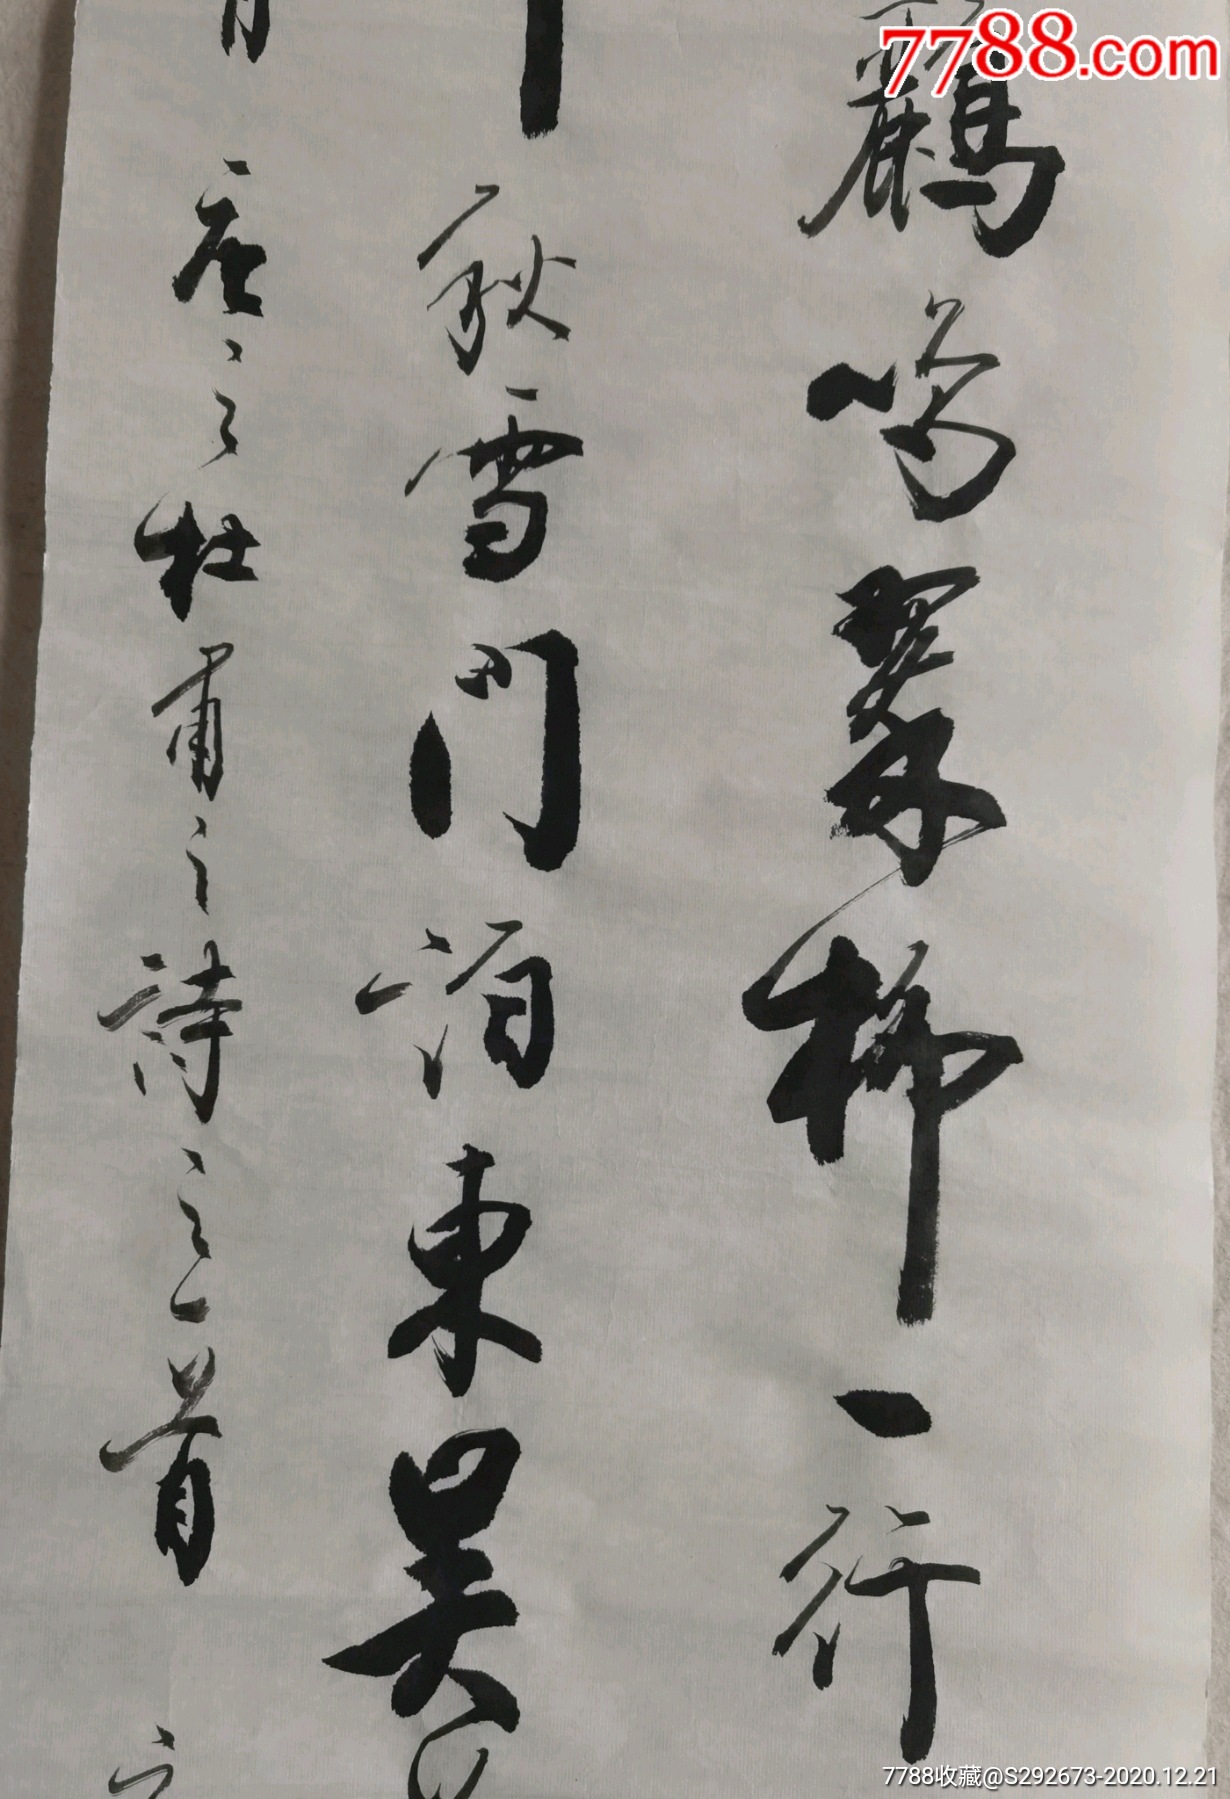 7788.com
鸝鳴翠柳一行
秋雪門泊東吳
唐之杜甫之詩之一首
7788收藏@S292673-2020.12.21